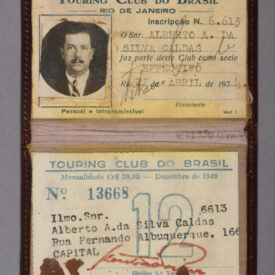 TOURING CLUB DO BRASIL
RIO DE JANEIRO
Inscripção N. 6.613
O Snr. ALBERTO A. DA
SILVA CALDAS
faz parte deste Club como socio
Rio, de ABRIL de 193
Presidente
Pessoal e intransmissivel
TOURING CLUB DO BRASIL
Mensalidade Cr$ 20,00 — Dezembro de 1949
Nº 13668
12
6613
Ilmo. Snr.
Alberto A.da Silva Caldas
Rua Fernando Albuquerque, 166
CAPITAL